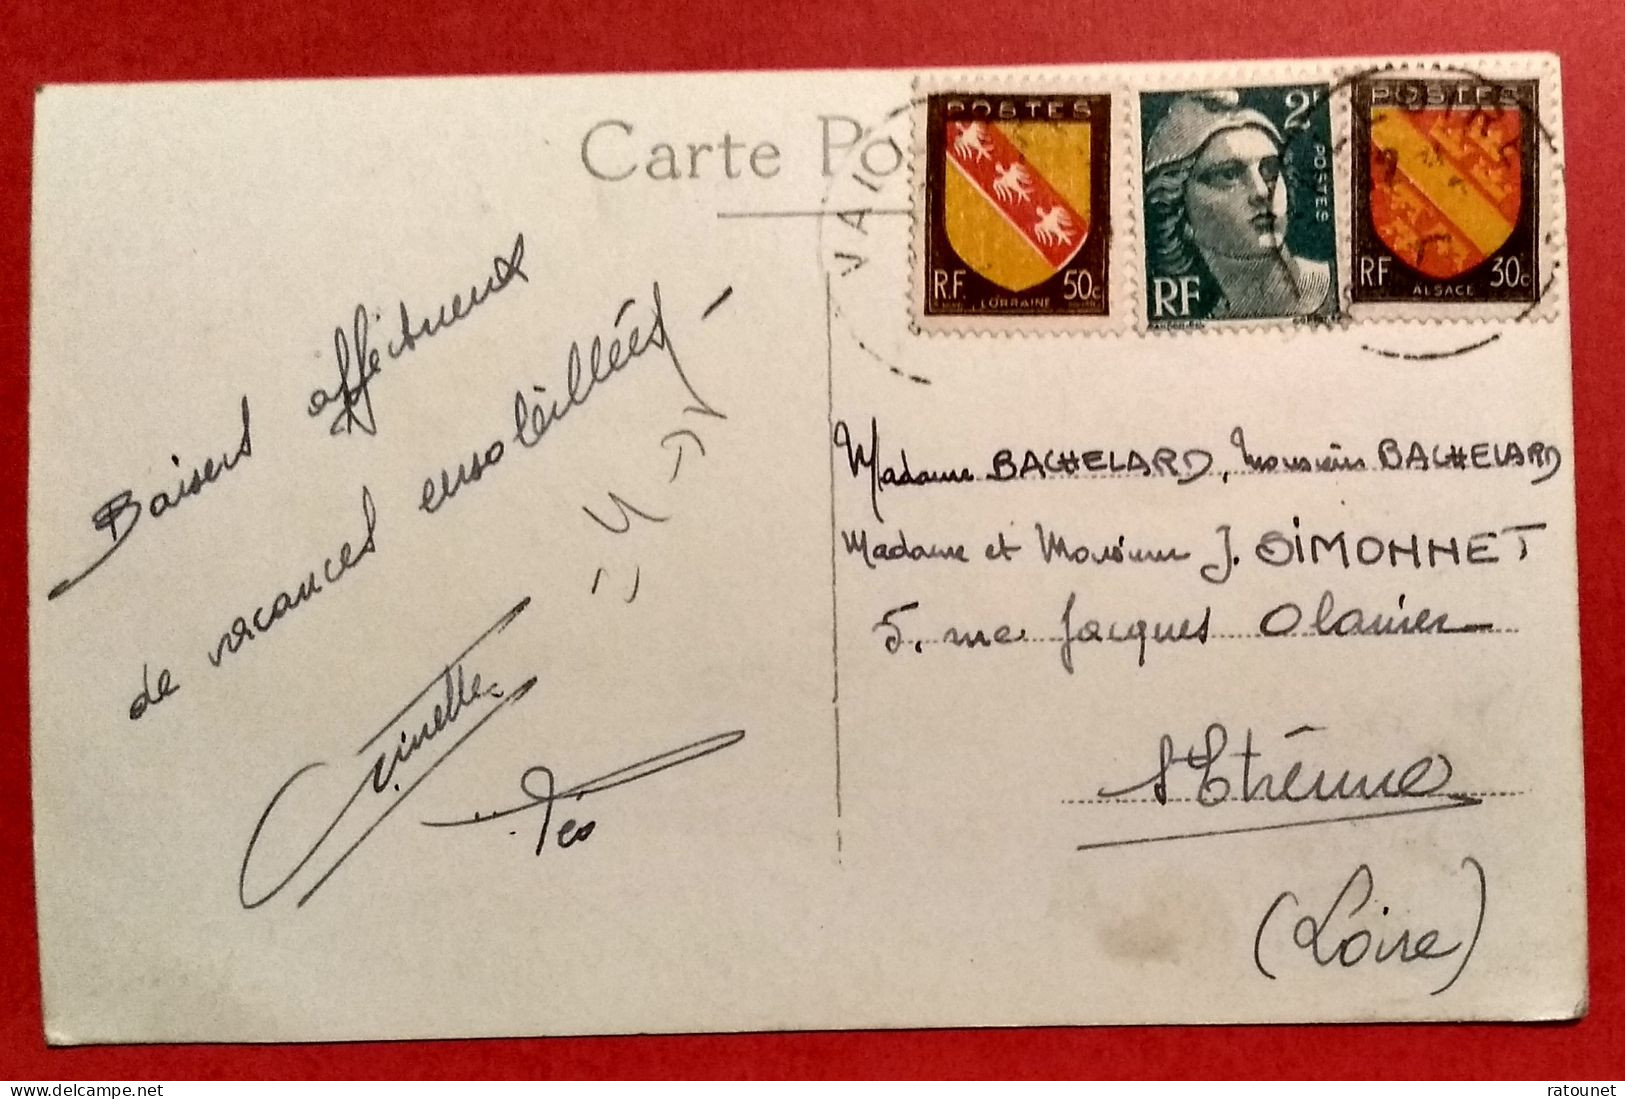 Carte Po
POSTES
RF
50c
LORRAINE
2F
POSTES
RF
POSTES
RF
30c
ALSACE
VAI
Baisers affectueux
de vacances ensoleillées
Ginette
Léo
Madame BACHELARD, Monsieur BACHELARD
Madame et Monsieur J. SIMONNET
5, rue Jacques
St Etienne
(Loire)
ratounet